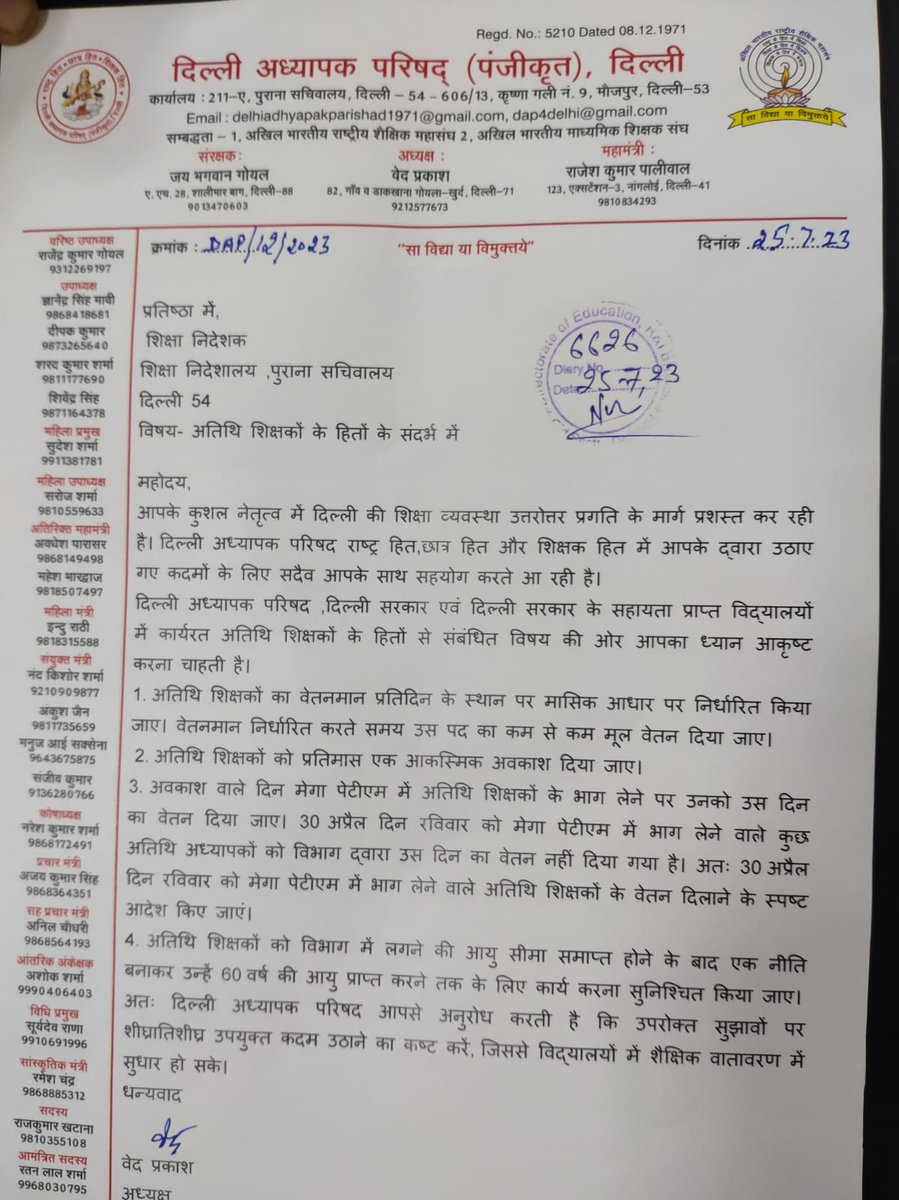 Regd. No.: 5210 Dated 08.12.1971
दिल्ली अध्यापक परिषद् (पंजीकृत), दिल्ली
कार्यालय : 211-ए, पुराना सचिवालय, दिल्ली - 54 - 606/13, कृष्णा गली नं. 9, मौजपुर, दिल्ली-53
Email : delhiadhyapakparishad1971@gmail.com, dap4delhi@gmail.com
सम्बद्धता - 1, अखिल भारतीय राष्ट्रीय शैक्षिक महासंघ 2, अखिल भारतीय माध्यमिक शिक्षक संघ
सा विद्या या विमुक्तये
संरक्षक:
जय भगवान गोयल
ए. एच. 28, शालीमार बाग, दिल्ली-88
9013470603
अध्यक्ष :
वेद प्रकाश
82, गाँव व डाकखाना गोयला-खुर्द, दिल्ली-71
9212577673
महामंत्री :
राजेश कुमार पालीवाल
123, एक्सटेंशन-3, नांगलोई, दिल्ली-41
9810834293
क्रमांक : DAP/12/2023
"सा विद्या या विमुक्तये"
दिनांक 25.7.23
वरिष्ठ उपाध्यक्ष
राजेंद्र कुमार गोयल
9312269197
उपाध्यक्ष
ज्ञानेंद्र सिंह मावी
9868418681
दीपक कुमार
9873265640
शरद कुमार शर्मा
9811177690
शिवेंद्र सिंह
9871164378
महिला प्रमुख
सुदेश शर्मा
9911381781
महिला उपाध्यक्ष
सरोज शर्मा
9810559633
अतिरिक्त महामंत्री
अवधेश पारासर
9868149498
महेश भारद्वाज
9818507497
महिला मंत्री
इन्दु राठी
9818315588
संयुक्त मंत्री
नंद किशोर शर्मा
9210909877
अंकुश जैन
9811735659
मनुज आई सक्सेना
9643675875
संजीव कुमार
9136280766
कोषाध्यक्ष
नरेश कुमार शर्मा
9868172491
प्रचार मंत्री
अजय कुमार सिंह
9868364351
सह प्रचार मंत्री
अनिल चौधरी
9868564193
आंतरिक अंकेक्षक
अशोक शर्मा
9990406403
विधि प्रमुख
सूर्यदेव राणा
9910691996
सांस्कृतिक मंत्री
रमेश चंद्र
9868885312
सदस्य
राजकुमार खटाना
9810355108
आमंत्रित सदस्य
रतन लाल शर्मा
9968030795
प्रतिष्ठा में,
शिक्षा निदेशक
शिक्षा निदेशालय ,पुराना सचिवालय
दिल्ली 54
विषय- अतिथि शिक्षकों के हितों के संदर्भ में
Directorate of Education,
6626
Diary No
Date 25.7.23
महोदय,
आपके कुशल नेतृत्व में दिल्ली की शिक्षा व्यवस्था उत्तरोत्तर प्रगति के मार्ग प्रशस्त कर रही
है। दिल्ली अध्यापक परिषद राष्ट्र हित,छात्र हित और शिक्षक हित में आपके द्वारा उठाए
गए कदमों के लिए सदैव आपके साथ सहयोग करते आ रही है।
दिल्ली अध्यापक परिषद ,दिल्ली सरकार एवं दिल्ली सरकार के सहायता प्राप्त विद्यालयों
में कार्यरत अतिथि शिक्षकों के हितों से संबंधित विषय की ओर आपका ध्यान आकृष्ट
करना चाहती है।
1. अतिथि शिक्षकों का वेतनमान प्रतिदिन के स्थान पर मासिक आधार पर निर्धारित किया
जाए। वेतनमान निर्धारित करते समय उस पद का कम से कम मूल वेतन दिया जाए।
2. अतिथि शिक्षकों को प्रतिमास एक आकस्मिक अवकाश दिया जाए।
3. अवकाश वाले दिन मेगा पेटीएम में अतिथि शिक्षकों के भाग लेने पर उनको उस दिन
का वेतन दिया जाए। 30 अप्रैल दिन रविवार को मेगा पेटीएम में भाग लेने वाले कुछ
अतिथि अध्यापकों को विभाग द्वारा उस दिन का वेतन नहीं दिया गया है। अतः 30 अप्रैल
दिन रविवार को मेगा पेटीएम में भाग लेने वाले अतिथि शिक्षकों के वेतन दिलाने के स्पष्ट
आदेश किए जाएं।
4. अतिथि शिक्षकों को विभाग में लगने की आयु सीमा समाप्त होने के बाद एक नीति
बनाकर उन्हें 60 वर्ष की आयु प्राप्त करने तक के लिए कार्य करना सुनिश्चित किया जाए।
अतः दिल्ली अध्यापक परिषद आपसे अनुरोध करती है कि उपरोक्त सुझावों पर
शीघ्रातिशीघ्र उपयुक्त कदम उठाने का कष्ट करें, जिससे विद्यालयों में शैक्षिक वातावरण में
सुधार हो सके।
धन्यवाद
वेद प्रकाश
अध्यक्ष